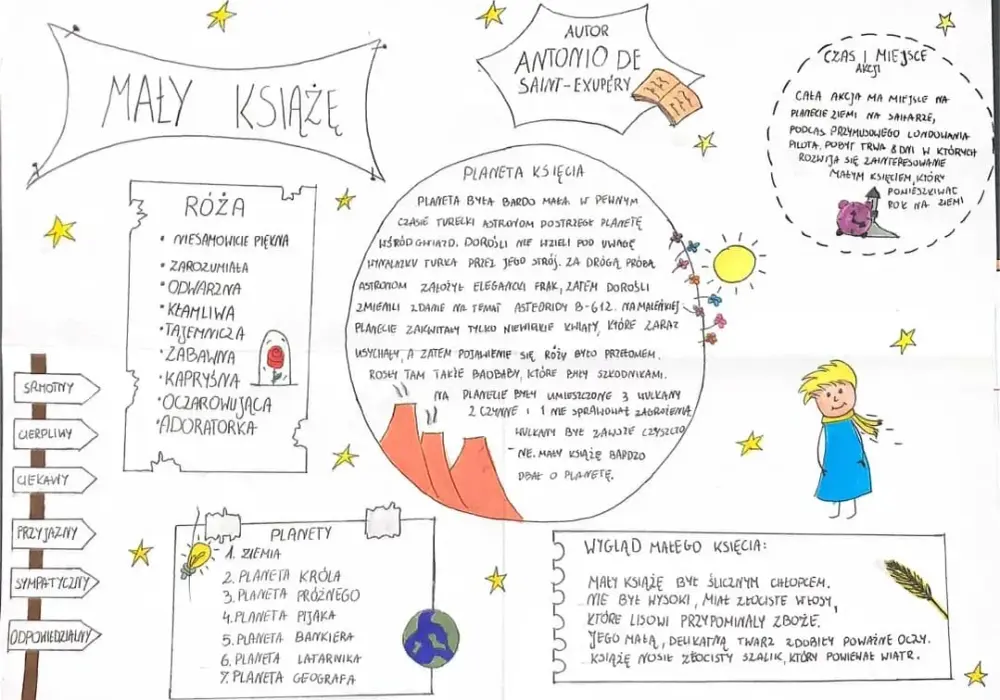 MAŁY KSIĄŻĘ
AUTOR
ANTONIO DE
SAINT-EXUPÉRY
CZAS I MIEJSCE
AKCJI
CAŁA AKCJA MA MIEJSCE NA
PLANECIE ZIEMI NA SAHARZE,
PODCAS PRZYMUSOWEGO LONDOWANIA
PILOTA. POBYT TRWA 8 DNI W KTÓRYCH
ROZWIJA SIĘ ZAINTERESOWANIE
MAŁYM KSIĘCIEM, KTÓRY
POMIESZKIWAĆ
ROK NA ZIEMI
RÓŻA
• NIESAMOWICIE PIĘKNA
• ZAROZUMIAŁA
• ODWAŻNA
• KŁAMLIWA
• TAJEMNICZA
• ZABAWNA
• KAPRYŚNA
• OCZAROWUJĄCA
• ADORATORKA
PLANETA KSIĘCIA
PLANETA BYŁA BARDO MAŁA. W PEWNYM
CZASIE TURECKI ASTRONOM DOSTRZEGŁ PLANETĘ
WŚRÓD GWIAZD. DOROŚLI NIE WZIELI POD UWAGĘ
WYNALAZKU TURKA PRZEZ JEGO STRÓJ. ZA DRÓGĄ PRÓBĄ
ASTRONOM ZAŁOŻYŁ ELEGANCKI FRAK, ZATEM DOROŚLI
ZMIENILI ZDANIE NA TEMAT ASTEROIDY B-612. NA MALEŃKIEJ
PLANECIE ZAKWITAŁY TYLKO NIEWIELKIE KWIATY, KTÓRE ZARAZ
USYCHAŁY, A ZATEM POJAWIENIE SIĘ RÓŻY BYŁO PRZEŁOMEM.
ROSŁY TAM TAKŻE BAOBABY, KTÓRE BYŁY SZKODNIKAMI.
NA PLANECIE BYŁY UMIESZCZONE 3 WULKANY
2 CZYNNE I 1 NIE SPRAWOWAŁ ZAGROŻENIA
WULKANY BYŁ ZAWSZE CZYSZCZO
- NE. MAŁY KSIĄŻĘ BARDZO
DBAŁ O PLANETĘ.
SAMOTNY
CIERPLIWY
CIEKAWY
PRZYJAZNY
SYMPATYCZNY
ODPOWIEDZIALNY
PLANETY
1. ZIEMIA
2. PLANETA KRÓLA
3. PLANETA PRÓŻNEGO
4. PLANETA PIJAKA
5. PLANETA BANKIERA
6. PLANETA LATARNIKA
7. PLANETA GEOGRAFA
WYGLĄD MAŁEGO KSIĘCIA:
MAŁY KSIĄŻĘ BYŁ ŚLICZNYM CHŁOPCEM.
NIE BYŁ WYSOKI, MIAŁ ZŁOCISTE WŁOSY,
KTÓRE LISOWI PRZYPOMINAŁY ZBOŻE.
JEGO MAŁĄ, DELIKATNĄ TWARZ ZDOBIŁY POWAŻNE OCZY.
KSIĄŻĘ NOSIŁ ZŁOCISTY SZALIK, KTÓRY POWIEWAŁ WIATR.